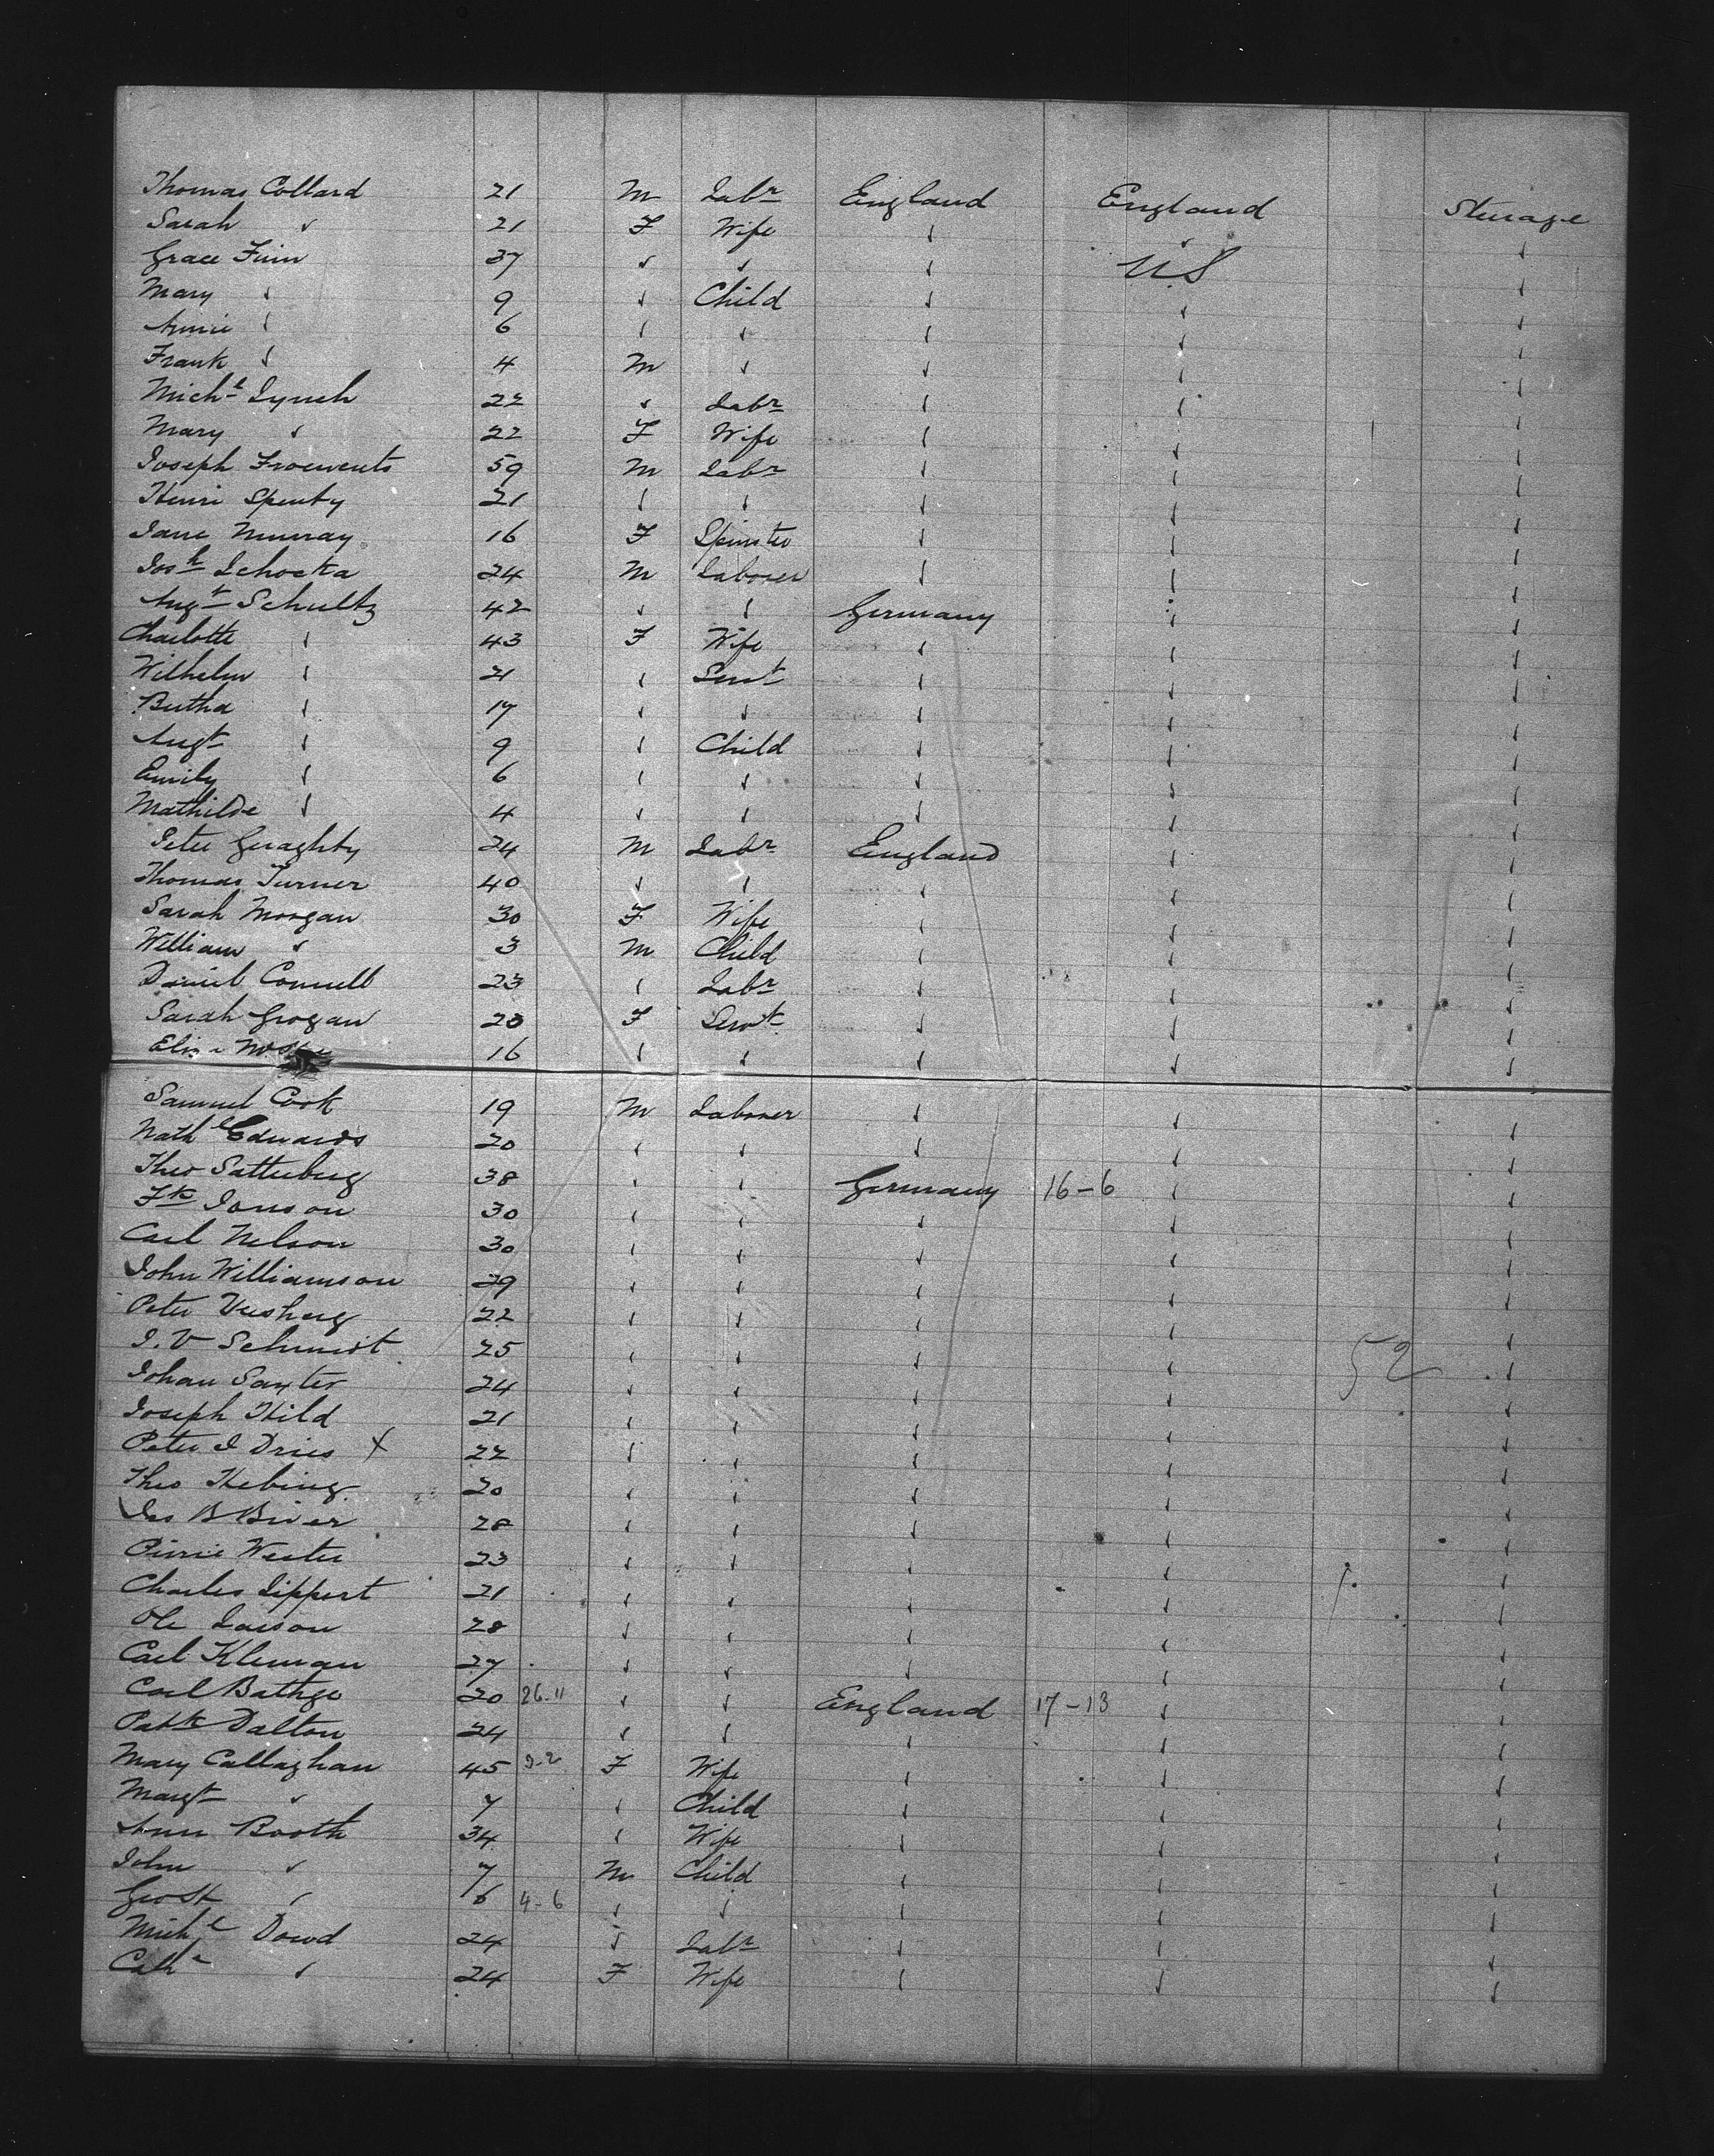 Thomas Collard 21 M Labr England England Steerage
Sarah " 21 F Wife " " "
Grace Finn 37 " " " U.S "
Mary " 9 " Child " " "
Annie " 6 " " " " "
Frank " 4 M " " " "
Michl Lynch 22 " Labr " " "
Mary " 22 F Wife " " "
Joseph 59 M Labr " " "
Henri 21 " " " " "
Jane Murray 16 F Spinster " " "
Josh Schocka 24 M Laborer " " "
Augt Schultz 42 " " Germany " "
Charlotte " 43 F Wife " " "
Wilhelm " 21 " Servt " " "
Bertha " 17 " " " " "
Augt " 9 " Child " " "
Emily " 6 " " " " "
Mathilde " 4 " " " " "
Peter Geraghty 24 M Labr England " "
Thomas Turner 40 " " " " "
Sarah Morgan 30 F Wife " " "
William " 3 M Child " " "
Daniel Connell 23 " Labr " " "
Sarah Grogan 20 F Servt " " "
Eliza 16 " " " " "
Samuel Cook 19 M Laborer " " "
Nathl Edwards 20 " " " " "
Theo Satterberg 38 " " Germany 16-6 " "
Fk Jonson 30 " " " " "
Carl Nelson 30 " " " " "
John Williamson 29 " " " " "
Peter 22 " " " " "
J. V Schmidt 25 " " " " 52 "
Johan Saxter 24 " " " " "
Joseph Hild 21 " " " " "
Peter J Dries X 22 " " " " "
Theo Hebing 20 " " " " "
Jas B Biver 28 " " " " "
Pierre Wester 23 " " " " "
Charles Lippert 21 " " " " "
Ole Larson 28 " " " " "
Carl Kleman 27 " " " " "
Carl Bathge 20 26-11 " " England 17-13 " "
Patk Dalton 24 " " " " "
Mary Callaghan 45 3-2 F Wife " " "
Margt " 7 " Child " " "
Ann Booth 34 " Wife " " "
John " 7 M Child " " "
Geo H " 6 4-6 " " " " "
Michl Dowd 24 " Labr " " "
Cathe " 24 F Wife " " "